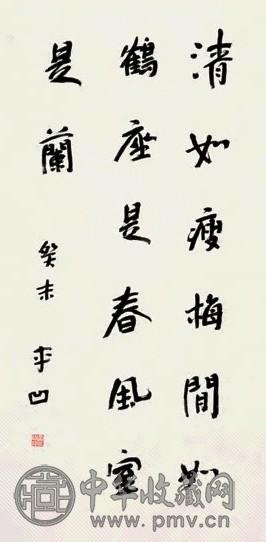 清如瘦梅閒如
鶴座是春風室
是蘭
癸未 平凹
中华收藏网
www.pmv.cn